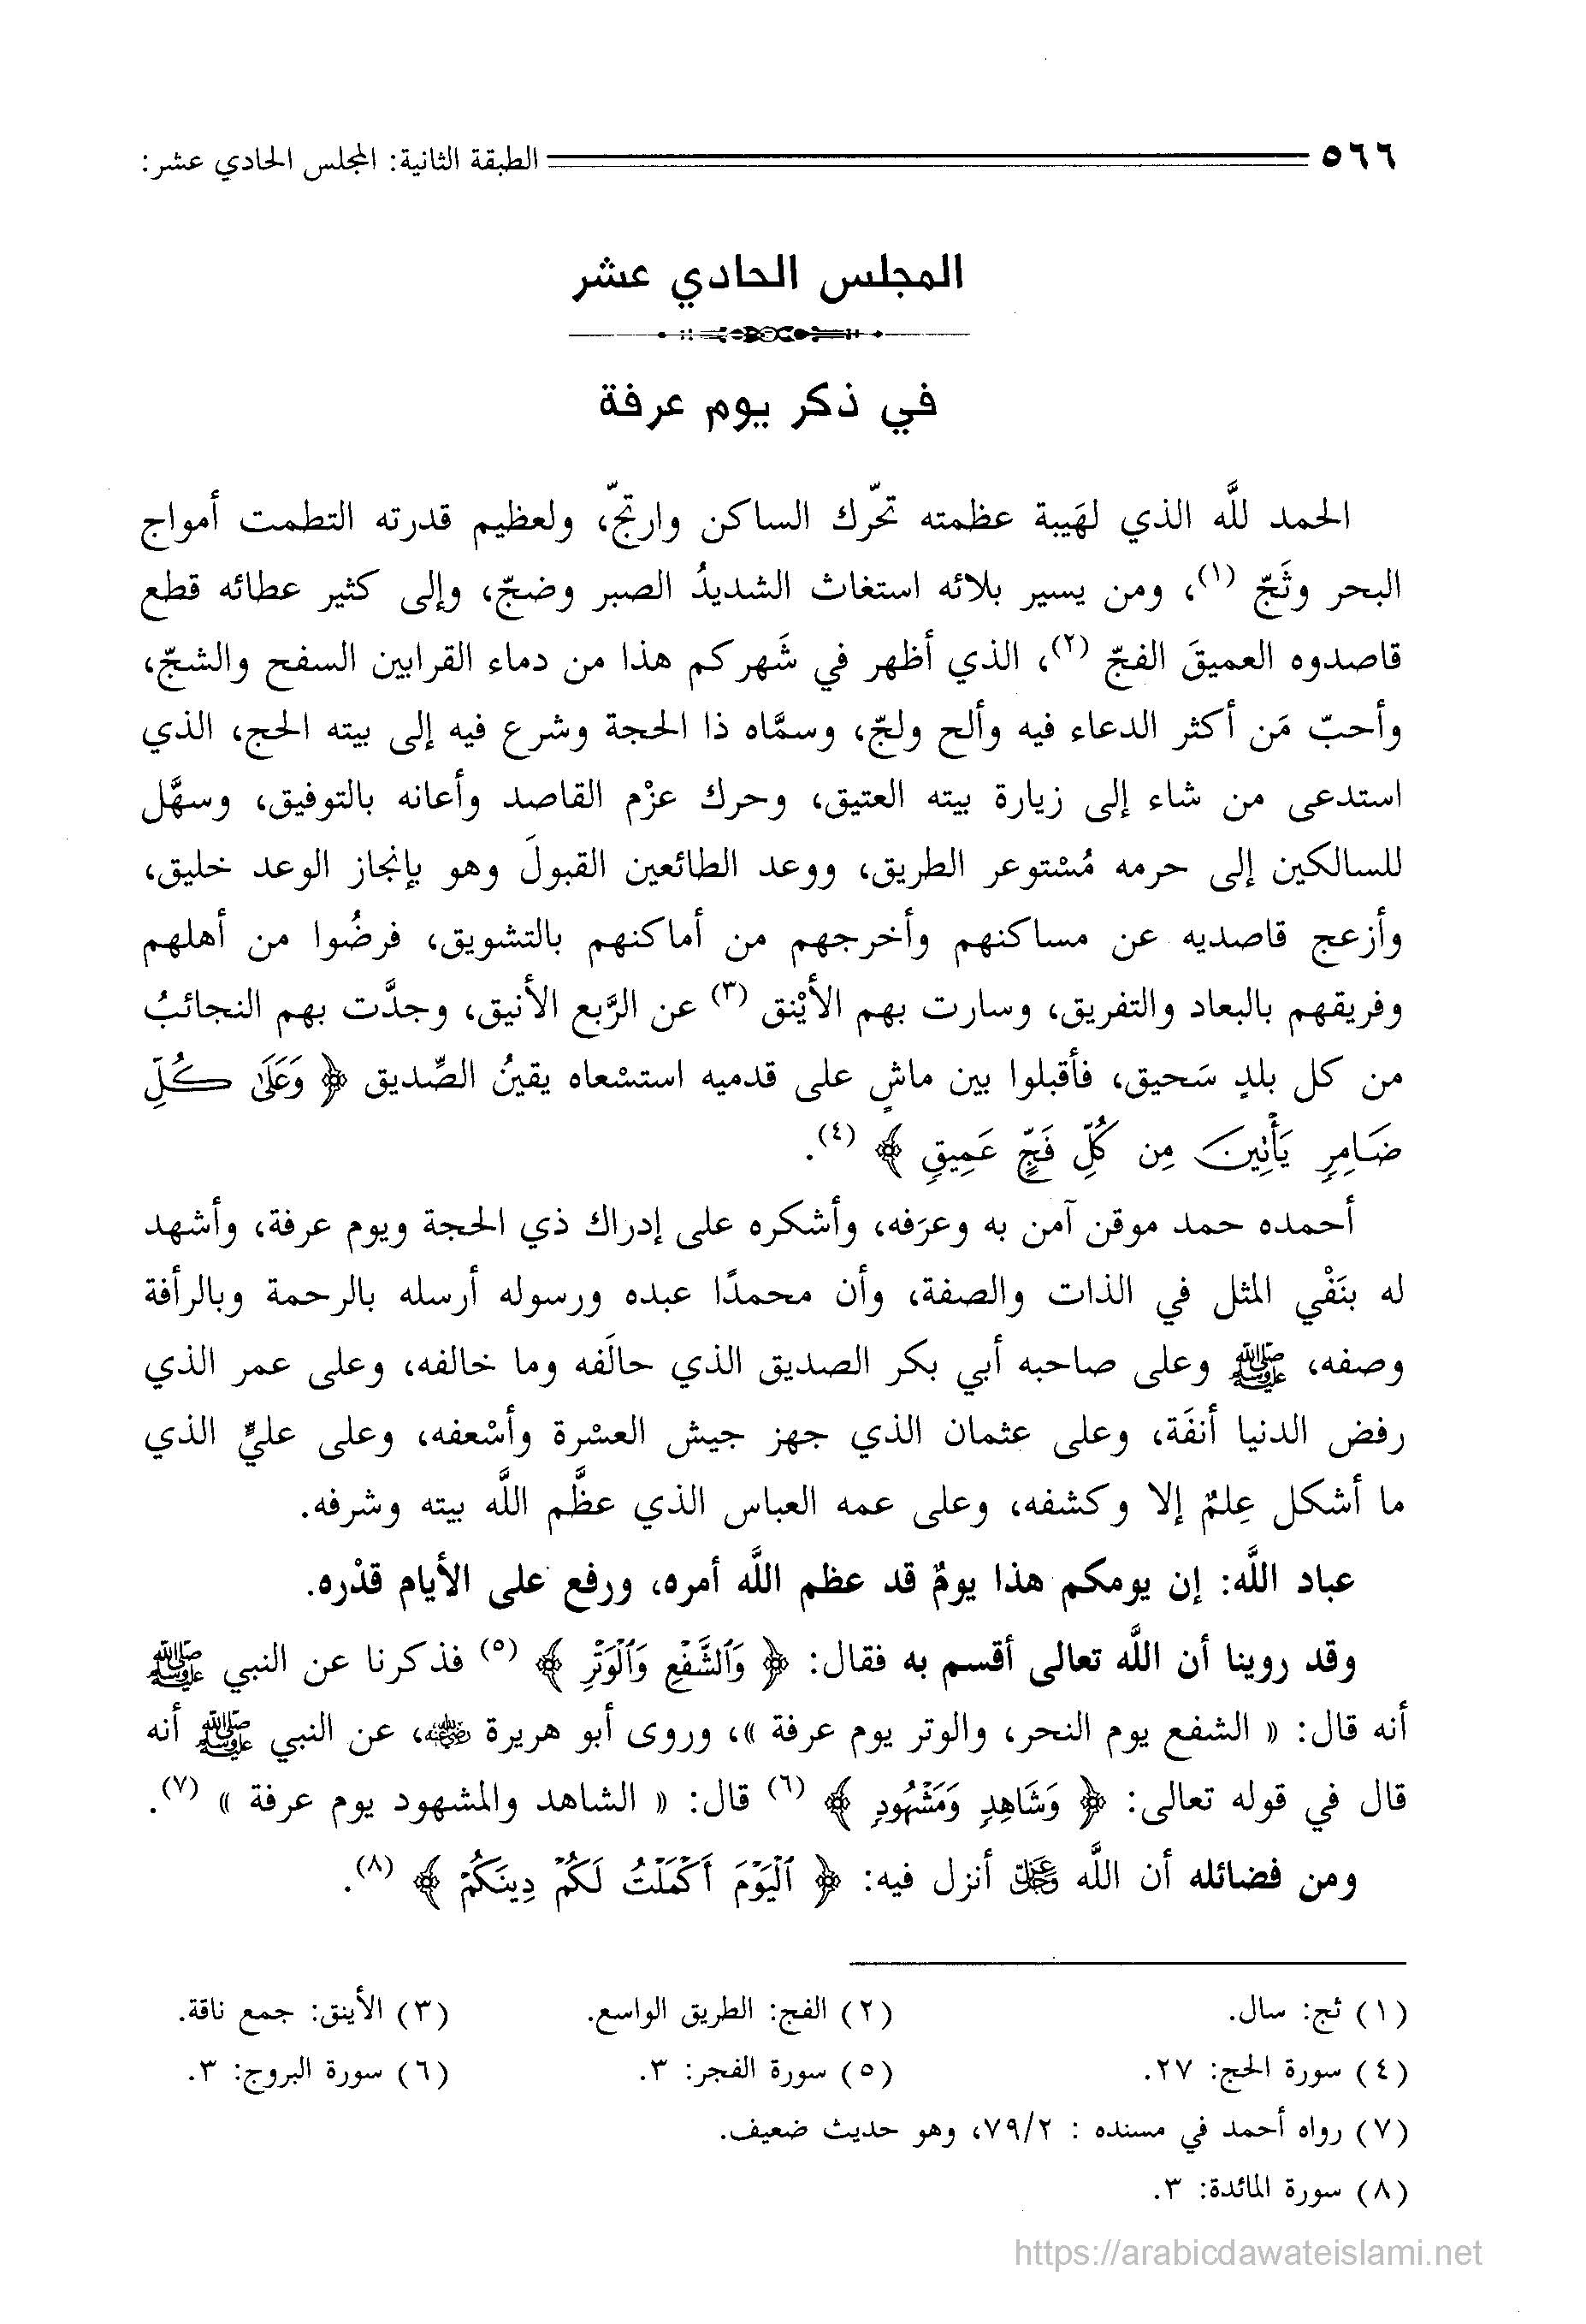 ٥٦٦ الطبقة الثانية: المجلس الحادي عشر:
المجلس الحادي عشر
في ذكر يوم عرفة
الحمد للَّه الذي لهَيبة عظمته تحّرك الساكن وارتجّ، ولعظيم قدرته التطمت أمواج
البحر وثَجّ (١)، ومن يسير بلائه استغاث الشديدُ الصبر وضجّ، وإلى كثير عطائه قطع
قاصدوه العميقَ الفجّ (٢)، الذي أظهر في شَهركم هذا من دماء القرابين السفح والشجّ،
وأحبّ مَن أكثر الدعاء فيه وألح ولجّ، وسمَّاه ذا الحجة وشرع فيه إلى بيته الحج، الذي
استدعى من شاء إلى زيارة بيته العتيق، وحرك عزْم القاصد وأعانه بالتوفيق، وسهَّل
للسالكين إلى حرمه مُسْتوعر الطريق، ووعد الطائعين القبولَ وهو بإنجاز الوعد خليق،
وأزعج قاصديه عن مساكنهم وأخرجهم من أماكنهم بالتشويق، فرضُوا من أهلهم
وفريقهم بالبعاد والتفريق، وسارت بهم الأيْنق (٣) عن الرَّبع الأنيق، وجدَّت بهم النجائبُ
من كل بلدٍ سَحيق، فأقبلوا بين ماشٍ على قدميه استسْعاه يقينُ الصِّديق ﴿ وَعَلَىٰ كُلِّ
ضَامِرٍ يَأْتِينَ مِن كُلِّ فَجٍّ عَمِيقٍ ﴾ (٤).
أحمده حمد موقن آمن به وعرَفه، وأشكره على إدراك ذي الحجة ويوم عرفة، وأشهد
له بنَفْي المثل في الذات والصفة، وأن محمدًا عبده ورسوله أرسله بالرحمة وبالرأفة
وصفه، ﷺ وعلى صاحبه أبي بكر الصديق الذي حالَفه وما خالفه، وعلى عمر الذي
رفض الدنيا أنفَة، وعلى عثمان الذي جهز جيش العسْرة وأسْعفه، وعلى عليٍّ الذي
ما أشكل عِلمٌ إلا وكشفه، وعلى عمه العباس الذي عظَّم اللَّه بيته وشرفه.
عباد اللَّه: إن يومكم هذا يومٌ قد عظم اللَّه أمره، ورفع على الأيام قدْره.
وقد روينا أن اللَّه تعالى أقسم به فقال: ﴿ وَٱلشَّفْعِ وَٱلْوَتْرِ ﴾ (٥) فذكرنا عن النبي ﷺ
أنه قال: « الشفع يوم النحر، والوتر يوم عرفة »، وروى أبو هريرة رضي الله عنه، عن النبي ﷺ أنه
قال في قوله تعالى: ﴿ وَشَاهِدٍ وَمَشْهُودٍ ﴾ (٦) قال: « الشاهد والمشهود يوم عرفة » (٧).
ومن فضائله أن اللَّه عز وجل أنزل فيه: ﴿ ٱلْيَوْمَ أَكْمَلْتُ لَكُمْ دِينَكُمْ ﴾ (٨).
(١) ثج: سال. (٢) الفج: الطريق الواسع. (٣) الأينق: جمع ناقة.
(٤) سورة الحج: ٢٧. (٥) سورة الفجر: ٣. (٦) سورة البروج: ٣.
(٧) رواه أحمد في مسنده : ٧٩/٢، وهو حديث ضعيف.
(٨) سورة المائدة: ٣.
https://arabicdawateislami.net